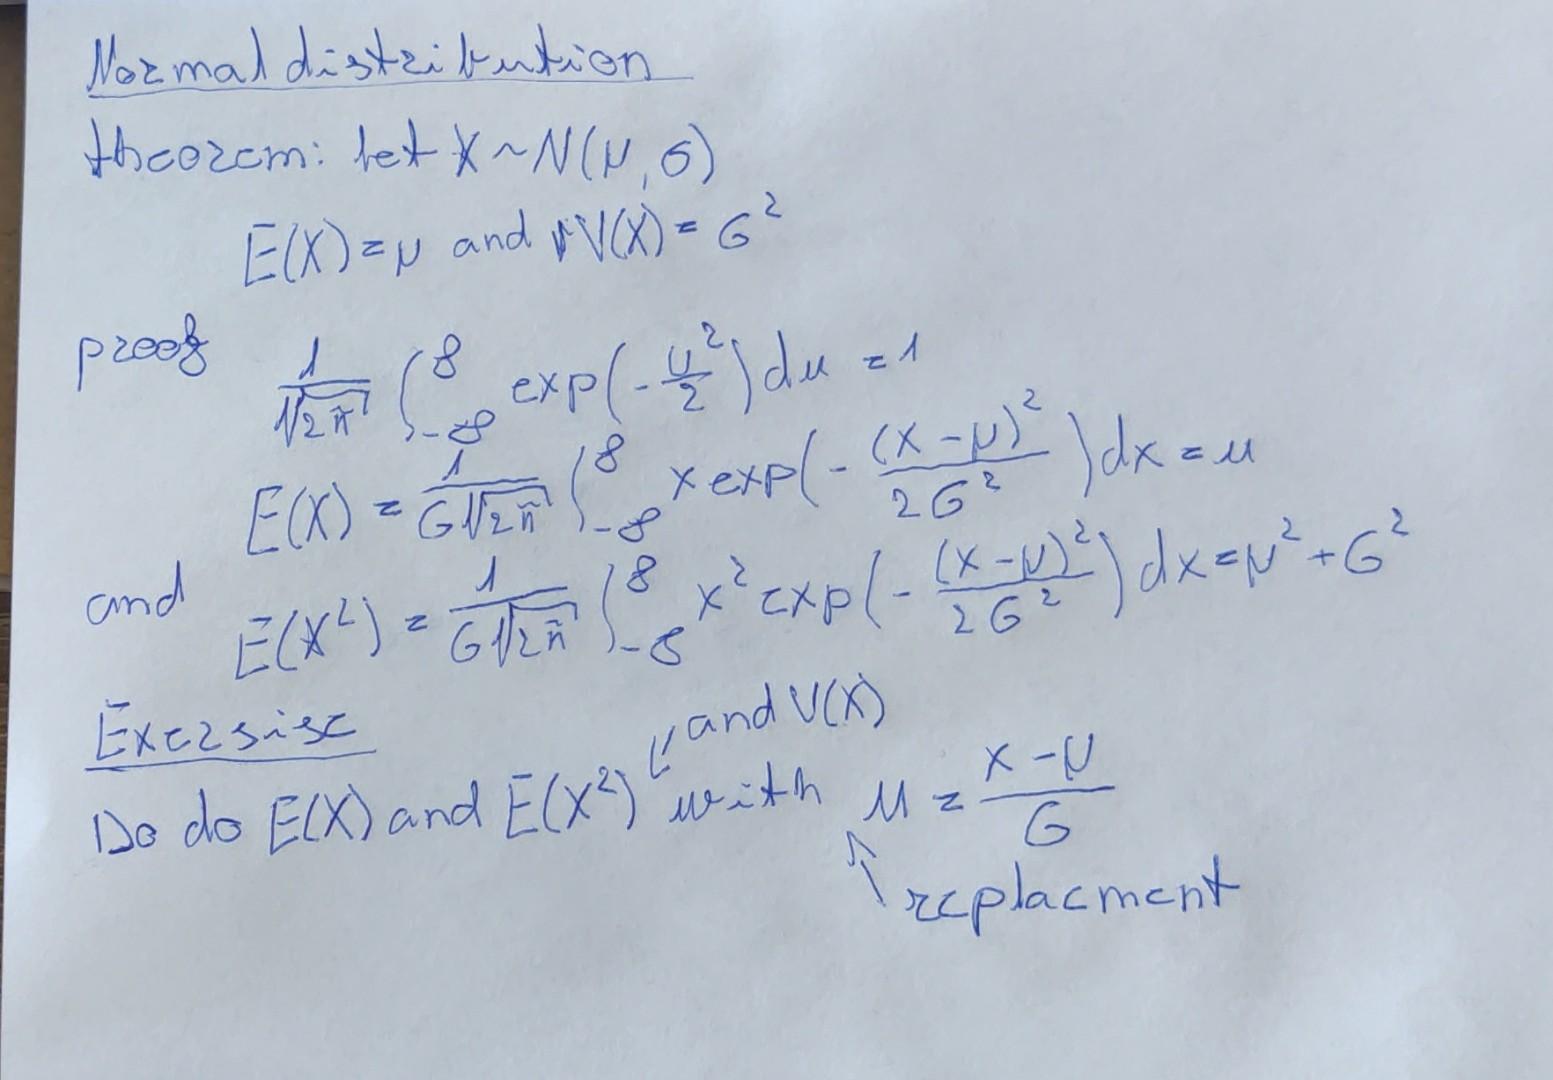 Normal distribution
theorem: let X ~ N(μ, σ)
E(X) = μ and V(X) = σ²
proof 1/√2π ∫_-∞^∞ exp(-u²/2) du = 1
E(X) = 1/σ√2π ∫_-∞^∞ x exp(-(x-μ)²/2σ²) dx = μ
and E(X²) = 1/σ√2π ∫_-∞^∞ x² exp(-(x-μ)²/2σ²) dx = μ² + σ²
Exersise
and V(X)
Do do E(X) and E(X²) with u = x-μ/σ
replacment